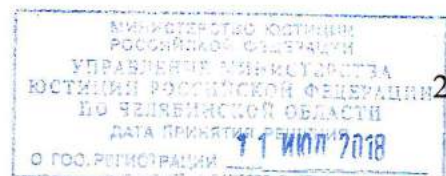 МИНИСТЕРСТВО ЮСТИЦИИ
РОССИЙСКОЙ ФЕДЕРАЦИИ
УПРАВЛЕНИЕ МИНИСТЕРСТВА
ЮСТИЦИИ РОССИЙСКОЙ ФЕДЕРАЦИИ 2
ПО ЧЕЛЯБИНСКОЙ ОБЛАСТИ
ДАТА ПРИНЯТИЯ РЕШЕНИЯ
О ГОС.РЕГИСТРАЦИИ 11 ИЮЛ 2018